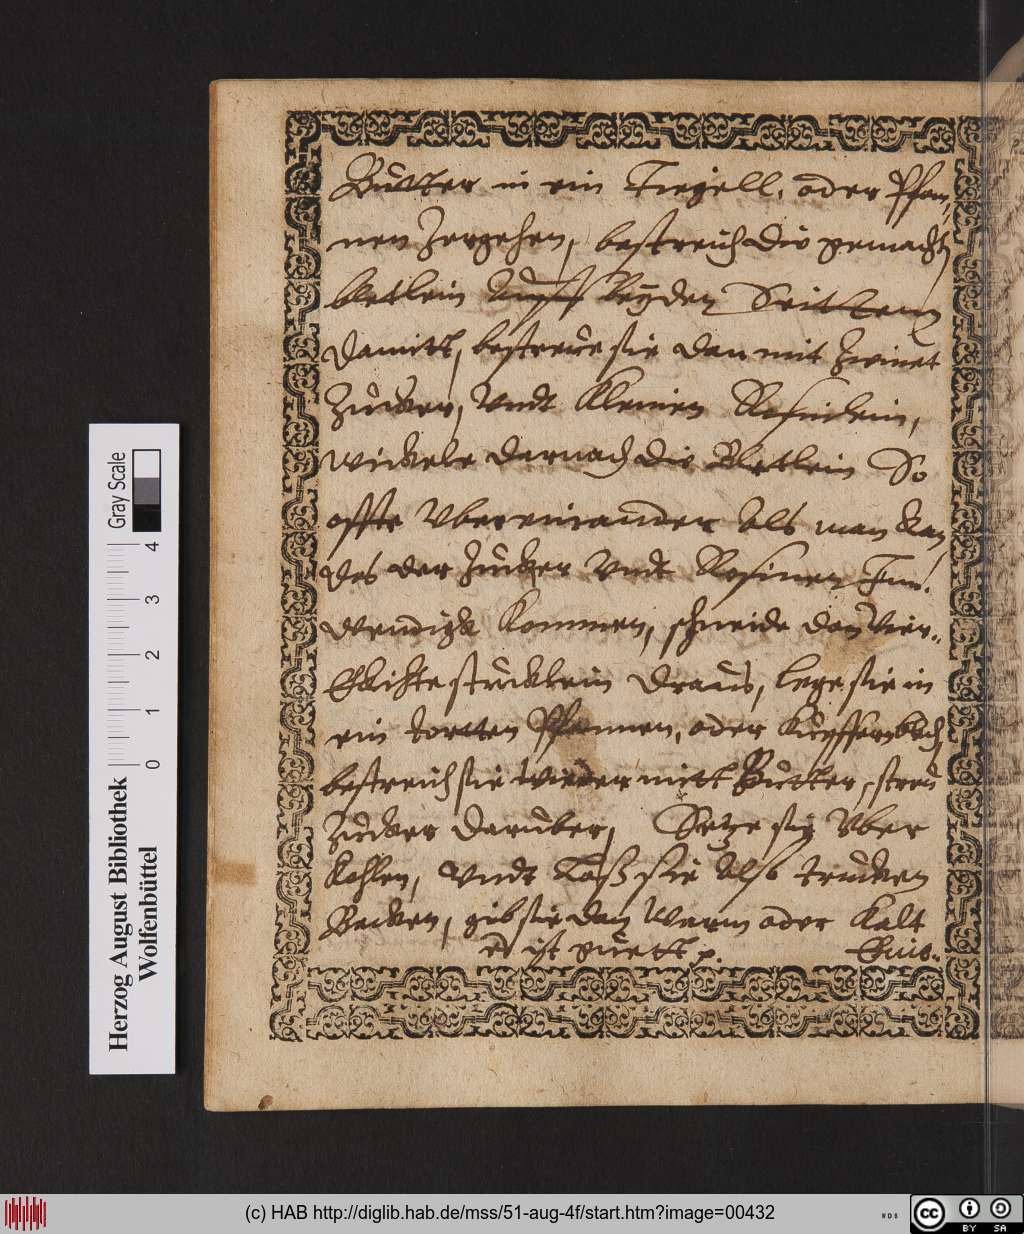 Butter in ein Tiegell, oder Pfan„
nen Zergehen, bestreich die gemacht
bletlein Auff beyden Seitten
damitt, bestreue sie dan mit Zimet
Zucker, Vndt Kleinen Rosinlein,
wickele darnach die Bletlein So
offte Vber einander Als man kan,
das der Zucker Vndt Rosinen Inn„
wendigk Kommen, schneide dan Vier„
Ekichte stucklein draus, lege sie in
ein tortten Pfannen, oder Kupffernblech,
bestreich sie wieder mitt Butter, streu
Zucker daruber, Setze sie Vber
Kohlen, Vndt Laß sie Also trucken
Backen, gib sie dan Warm oder Kalt
es ist guett
Herzog August Bibliothek
Wolfenbüttel
0 1 2 3 4
Gray Scale
(c) HAB http://diglib.hab.de/mss/51-aug-4f/start.htm?image=00432
WDB
cc BY SA